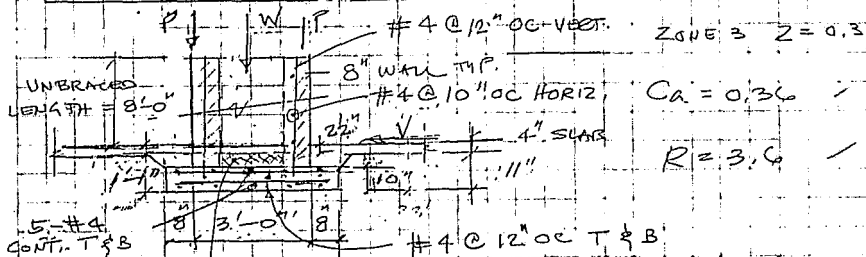 P W P
# 4 @ 12" OC-VERT. ZONE 3 Z = 0.3
8" WALL TYP.
UNBRACED
LENGTH = 8'-0"
# 4 @ 10" OC HORIZ. Ca = 0.36
2½" V 4" SLAB
R = 3.6
1'-1" 10" 11"
5-#4
CONT. T & B
8" 3'-0" 8"
# 4 @ 12" OC T & B